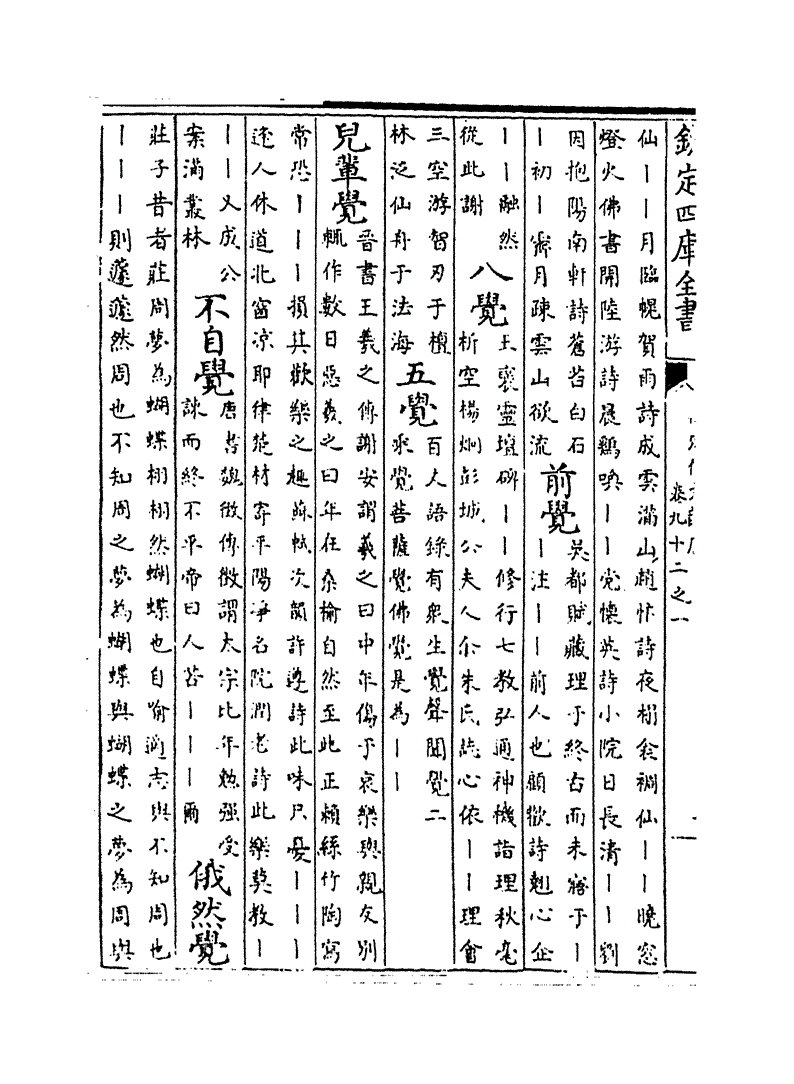 欽定四庫全書
卷九十二之一
仙丨丨月臨幌賀雨詩成雲滿山趙忭詩夜榻衾裯仙丨丨曉窓
燈火佛書開陸游詩晨鷄喚丨丨党懷英詩小院日長清丨丨劉
因抱陽南軒詩蒼苔白石
丨初丨霽月疎雲山欲流
前覺
吳都賦藏理于終古而未寤于丨
丨注丨丨前人也顧歡詩翹心企
丨丨融然
從此謝
八覺
王襃靈壇碑丨丨修行七教弘通神機詣理秋毫
析空楊炯彭城公夫人尒朱氏誌心依丨丨理會
三空游智刃于檀
林泛仙舟于法海
五覺
百人語錄有衆生覺聲聞覺二
乘覺菩薩覺佛覺是為丨丨
兒輩覺
晉書王羲之傳謝安謂羲之曰中年傷于哀樂與親友別
輒作數日惡羲之曰年在桑榆自然至此正賴絲竹陶寫
常恐丨丨丨損其歡樂之趣蘇軾次韻許遵詩此味只憂丨丨丨
逸人休道北窗凉耶律楚材寄平陽凈名院潤老詩此樂莫教丨
丨丨又成公
案滿叢林
不自覺
唐書魏徵傳徵謂太宗比年勉強受
諫而終不平帝曰人苦丨丨丨爾
俄然覺
莊子昔者莊周夢為蝴蝶栩栩然蝴蝶也自喻適志與不知周也
丨丨丨則蘧蘧然周也不知周之夢為蝴蝶與蝴蝶之夢為周與